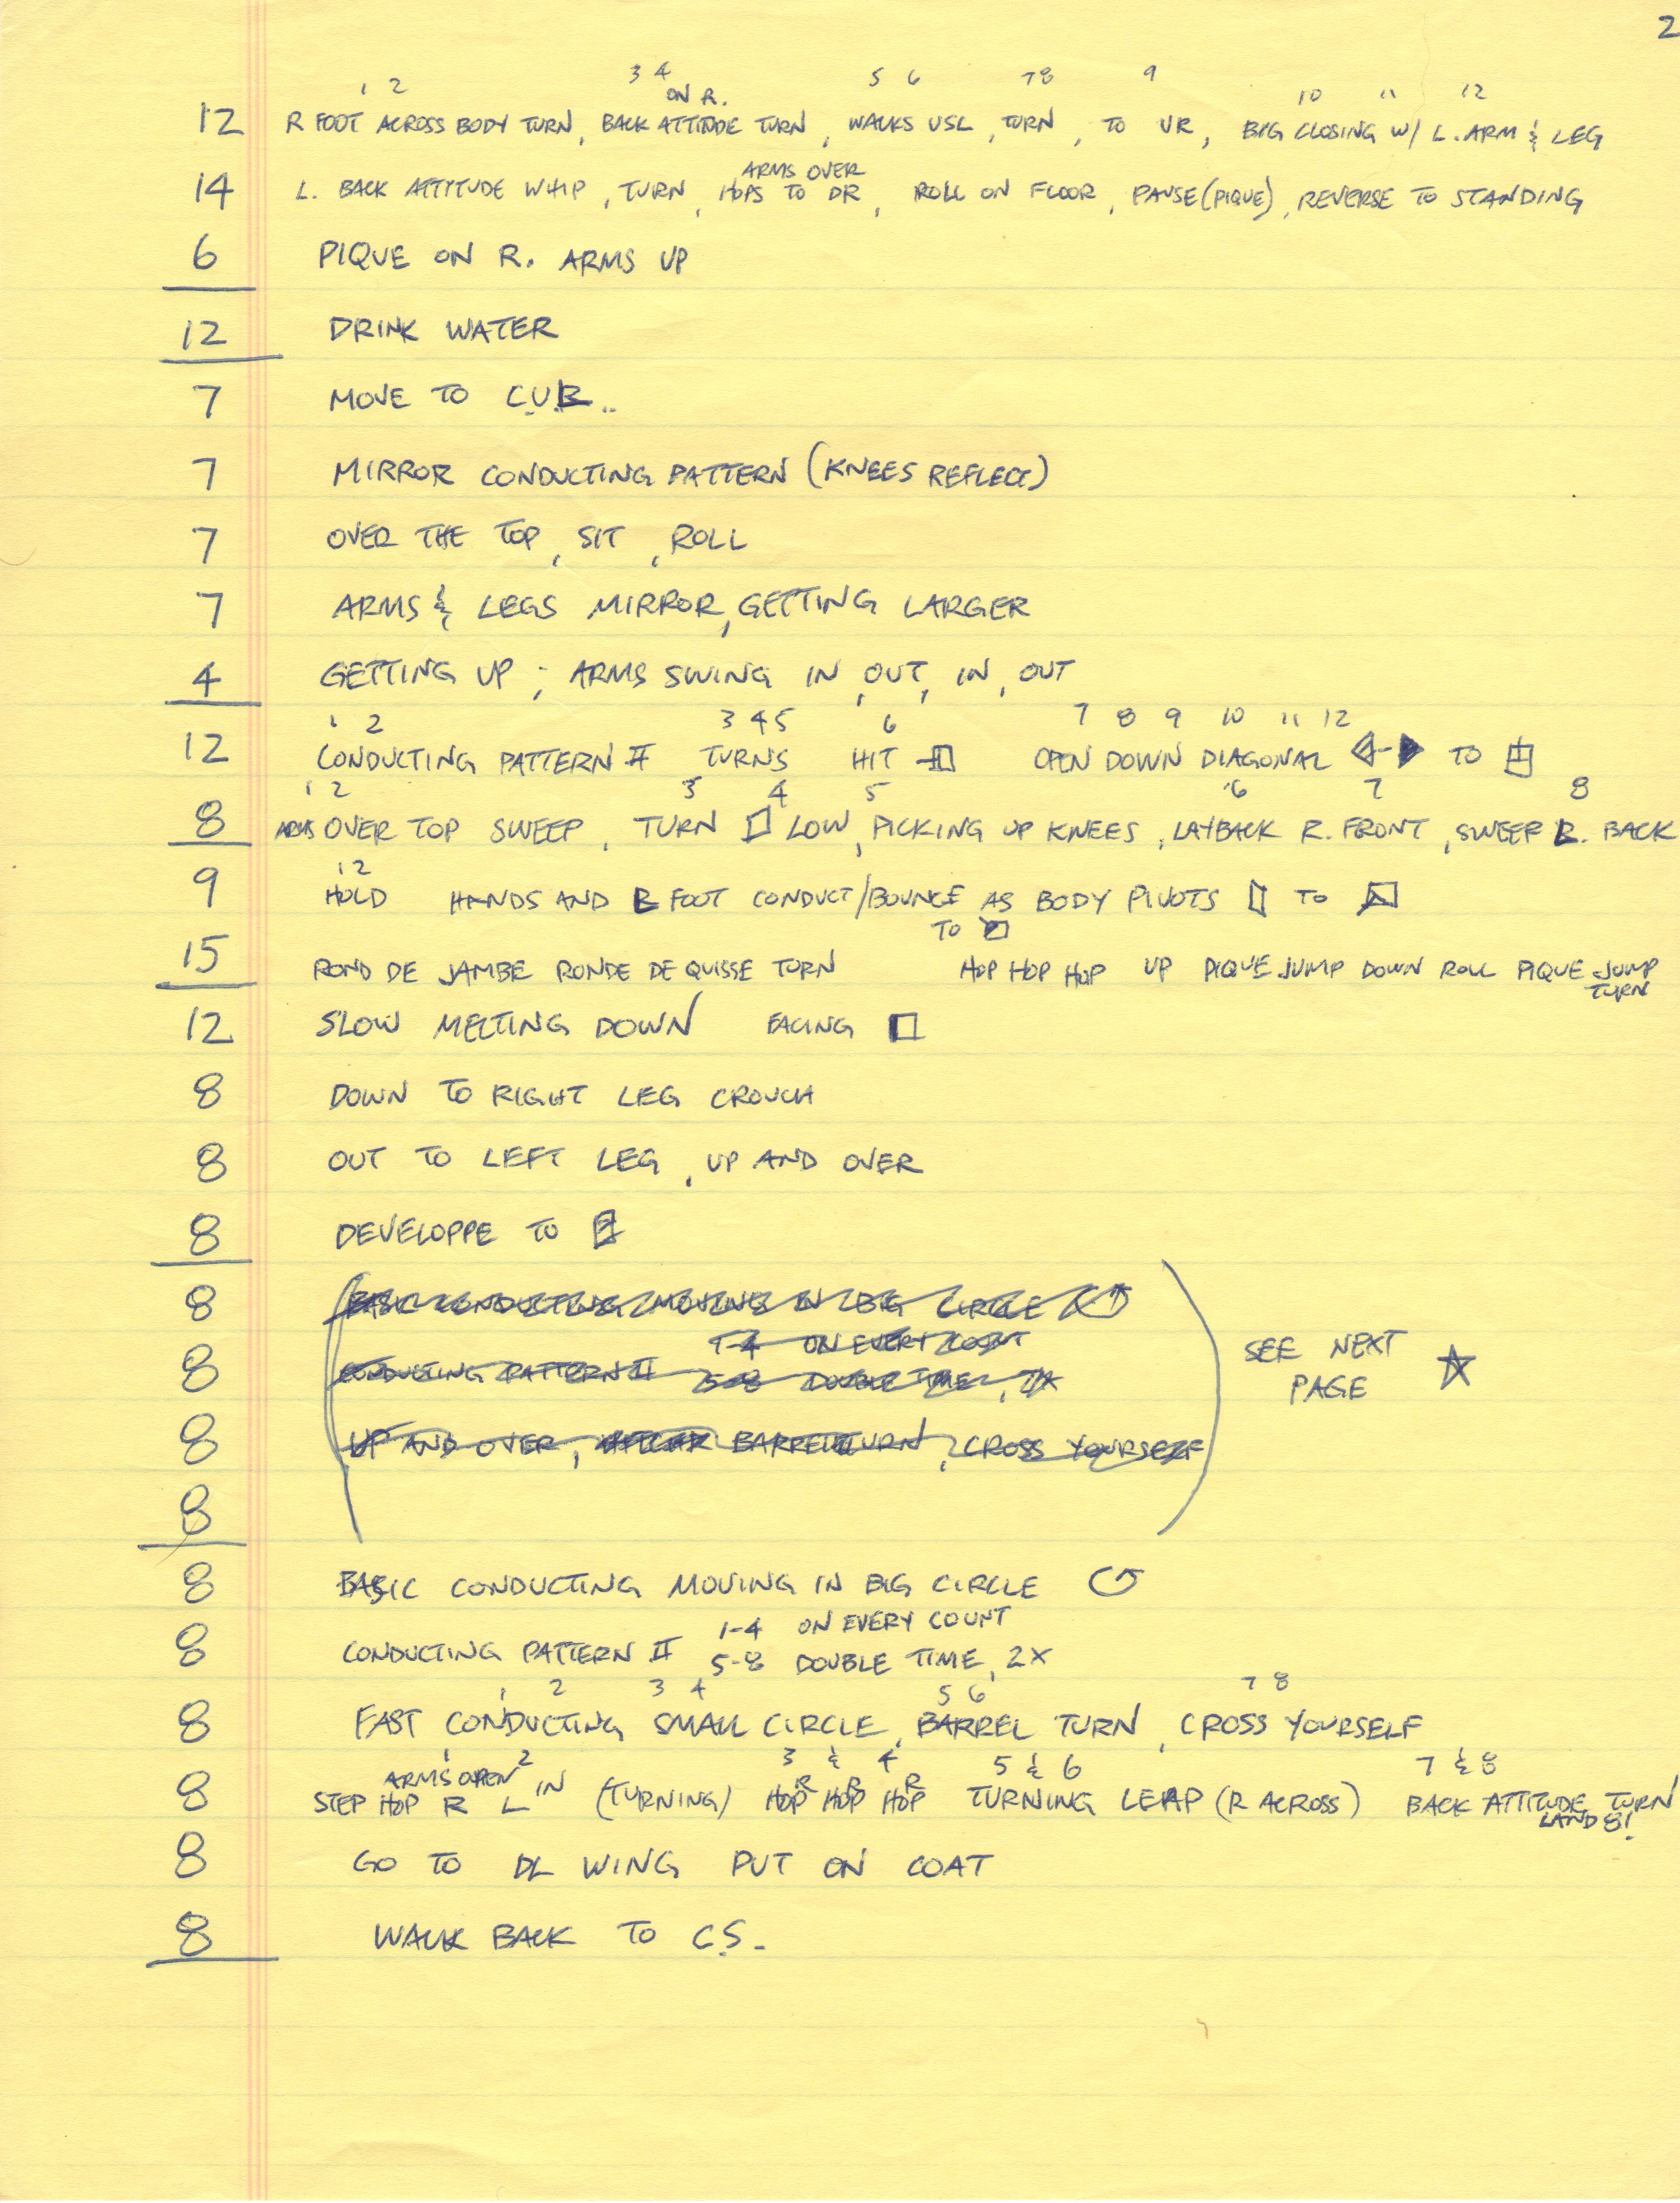 2
1 2 3 4 5 6 7 8 9 10 11 12
ON R.
12 R FOOT ACROSS BODY TURN, BACK ATTITUDE TURN, WALKS USL, TURN, TO UR, BIG CLOSING W/ L. ARM & LEG
ARMS OVER
14 L. BACK ATTITUDE WHIP, TURN, HOPS TO DR, ROLL ON FLOOR, PAUSE (PIQUE), REVERSE TO STANDING
6 PIQUE ON R. ARMS UP
12 DRINK WATER
7 MOVE TO C.U.
7 MIRROR CONDUCTING PATTERN (KNEES REFLECT)
7 OVER THE TOP, SIT, ROLL
7 ARMS & LEGS MIRROR, GETTING LARGER
4 GETTING UP; ARMS SWING IN, OUT, IN, OUT
1 2 3 4 5 6 7 8 9 10 11 12
12 CONDUCTING PATTERN II TURNS HIT OPEN DOWN DIAGONAL TO
1 2 3 4 5 6 7 8
8 ARMS OVER TOP SWEEP, TURN LOW, PICKING UP KNEES, LAYBACK R. FRONT, SWEEP BACK
1 2
9 HOLD HANDS AND FOOT CONDUCT/BOUNCE AS BODY PIVOTS TO
TO
15 ROND DE JAMBE RONDE DE QUISSE TURN HOP HOP HOP UP PIQUE JUMP DOWN ROLL PIQUE JUMP
TURN
12 SLOW MELTING DOWN FACING
8 DOWN TO RIGHT LEG CROUCH
8 OUT TO LEFT LEG, UP AND OVER
8 DEVELOPPE TO
8 BASIC CONDUCTING MOVING IN BIG CIRCLE
1-4 ON EVERY COUNT
8 CONDUCTING PATTERN II 5-8 DOUBLE TIME,
SEE NEXT
PAGE
8 UP AND OVER, BARREL TURN, CROSS YOURSELF
8
8 BASIC CONDUCTING MOVING IN BIG CIRCLE
1-4 ON EVERY COUNT
8 CONDUCTING PATTERN II 5-8 DOUBLE TIME, 2X
1 2 3 4 5 6 7 8
8 FAST CONDUCTING SMALL CIRCLE, BARREL TURN, CROSS YOURSELF
1 2 3 & 4 5 & 6 7 & 8
ARMS OPEN IN R R R
8 STEP HOP R L (TURNING) HOP HOP HOP TURNING LEAP (R ACROSS) BACK ATTITUDE TURN
LAND 8!
8 GO TO DL WING PUT ON COAT
8 WALK BACK TO C.S.